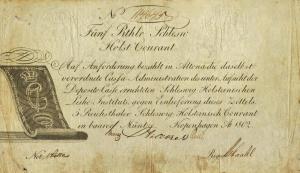 No
Fünf Rthlr Schlesw
Holst Courant
Auf Anforderung bezahlt in Altona die daselbst
verordnete Cassa-Administration des unter Aufsicht der
Deposito Casse errichteten Schleswig Holsteinischen
Leihe Instituts, gegen Einlieferung dieses Zettels
5 Reichsthaler Schleswig Holsteinisch Courant
in baarer Müntze Kopenhagen Ao 1802